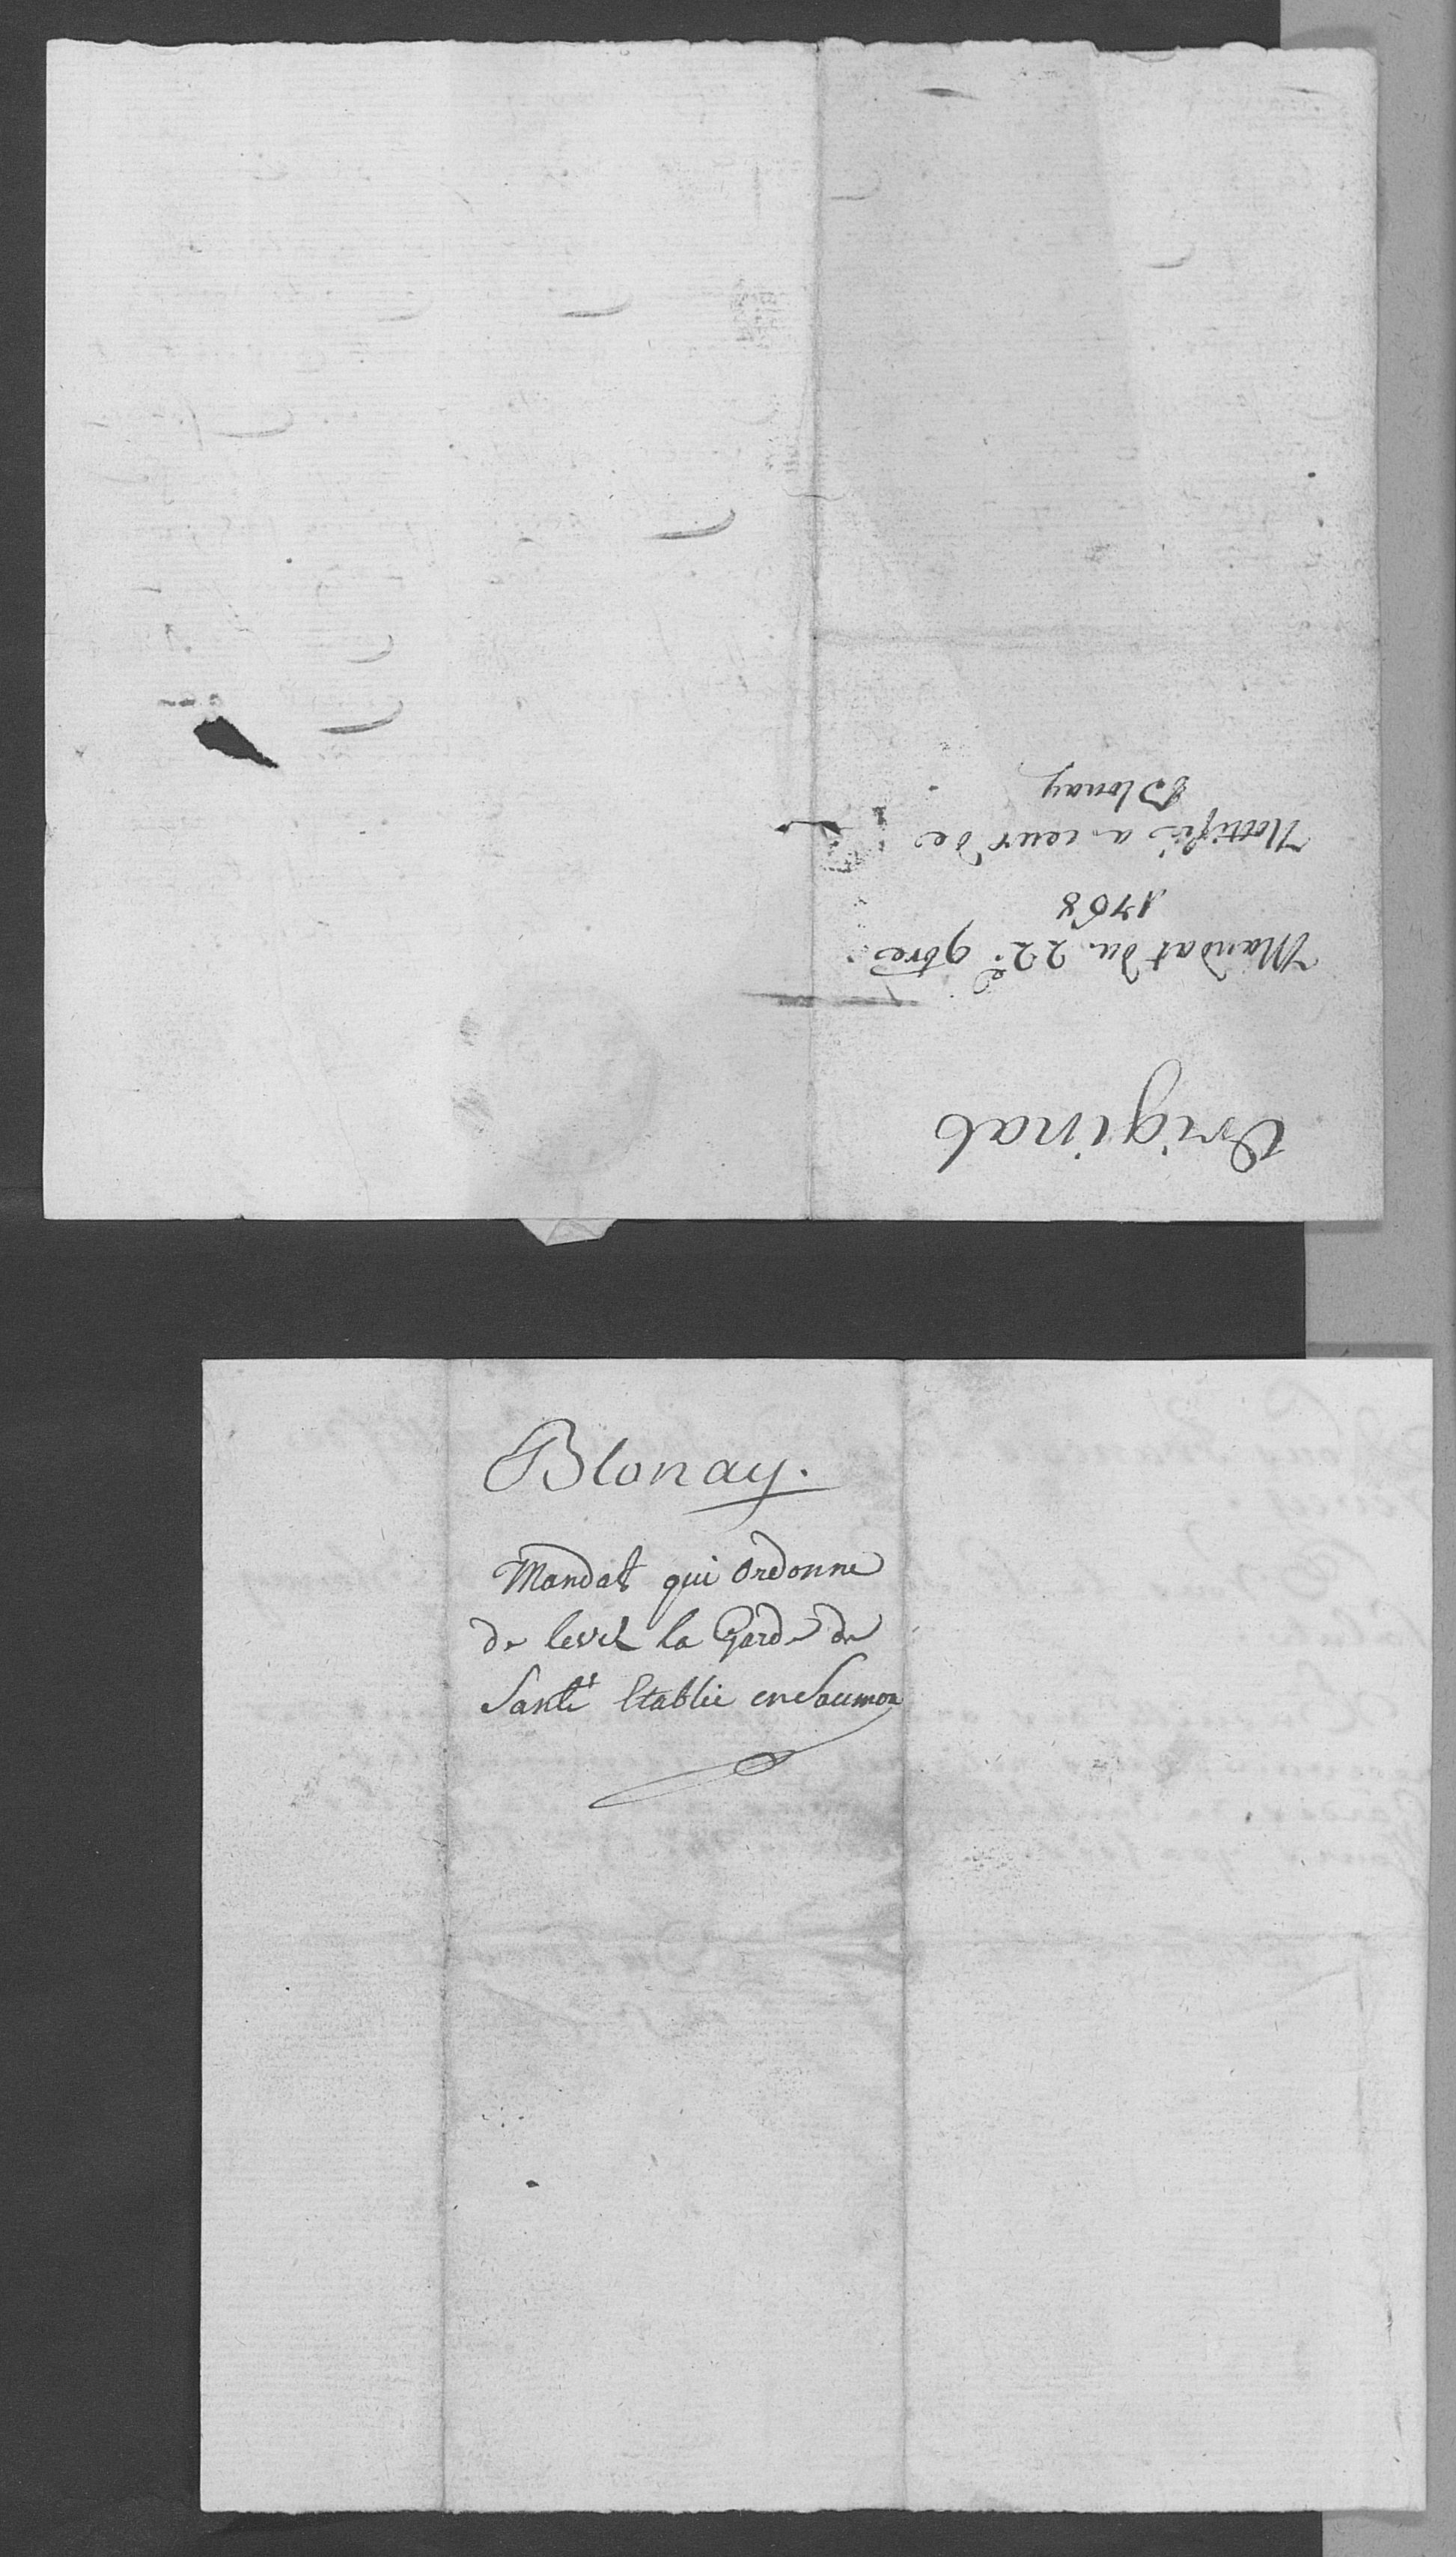 Original
Mandat du 22.e 9bre
1768
Nottifié a ceux de
Blonay
Blonay.
Mandat qui ordonne
de lever la Garde de
Santé Etablie en Saumon